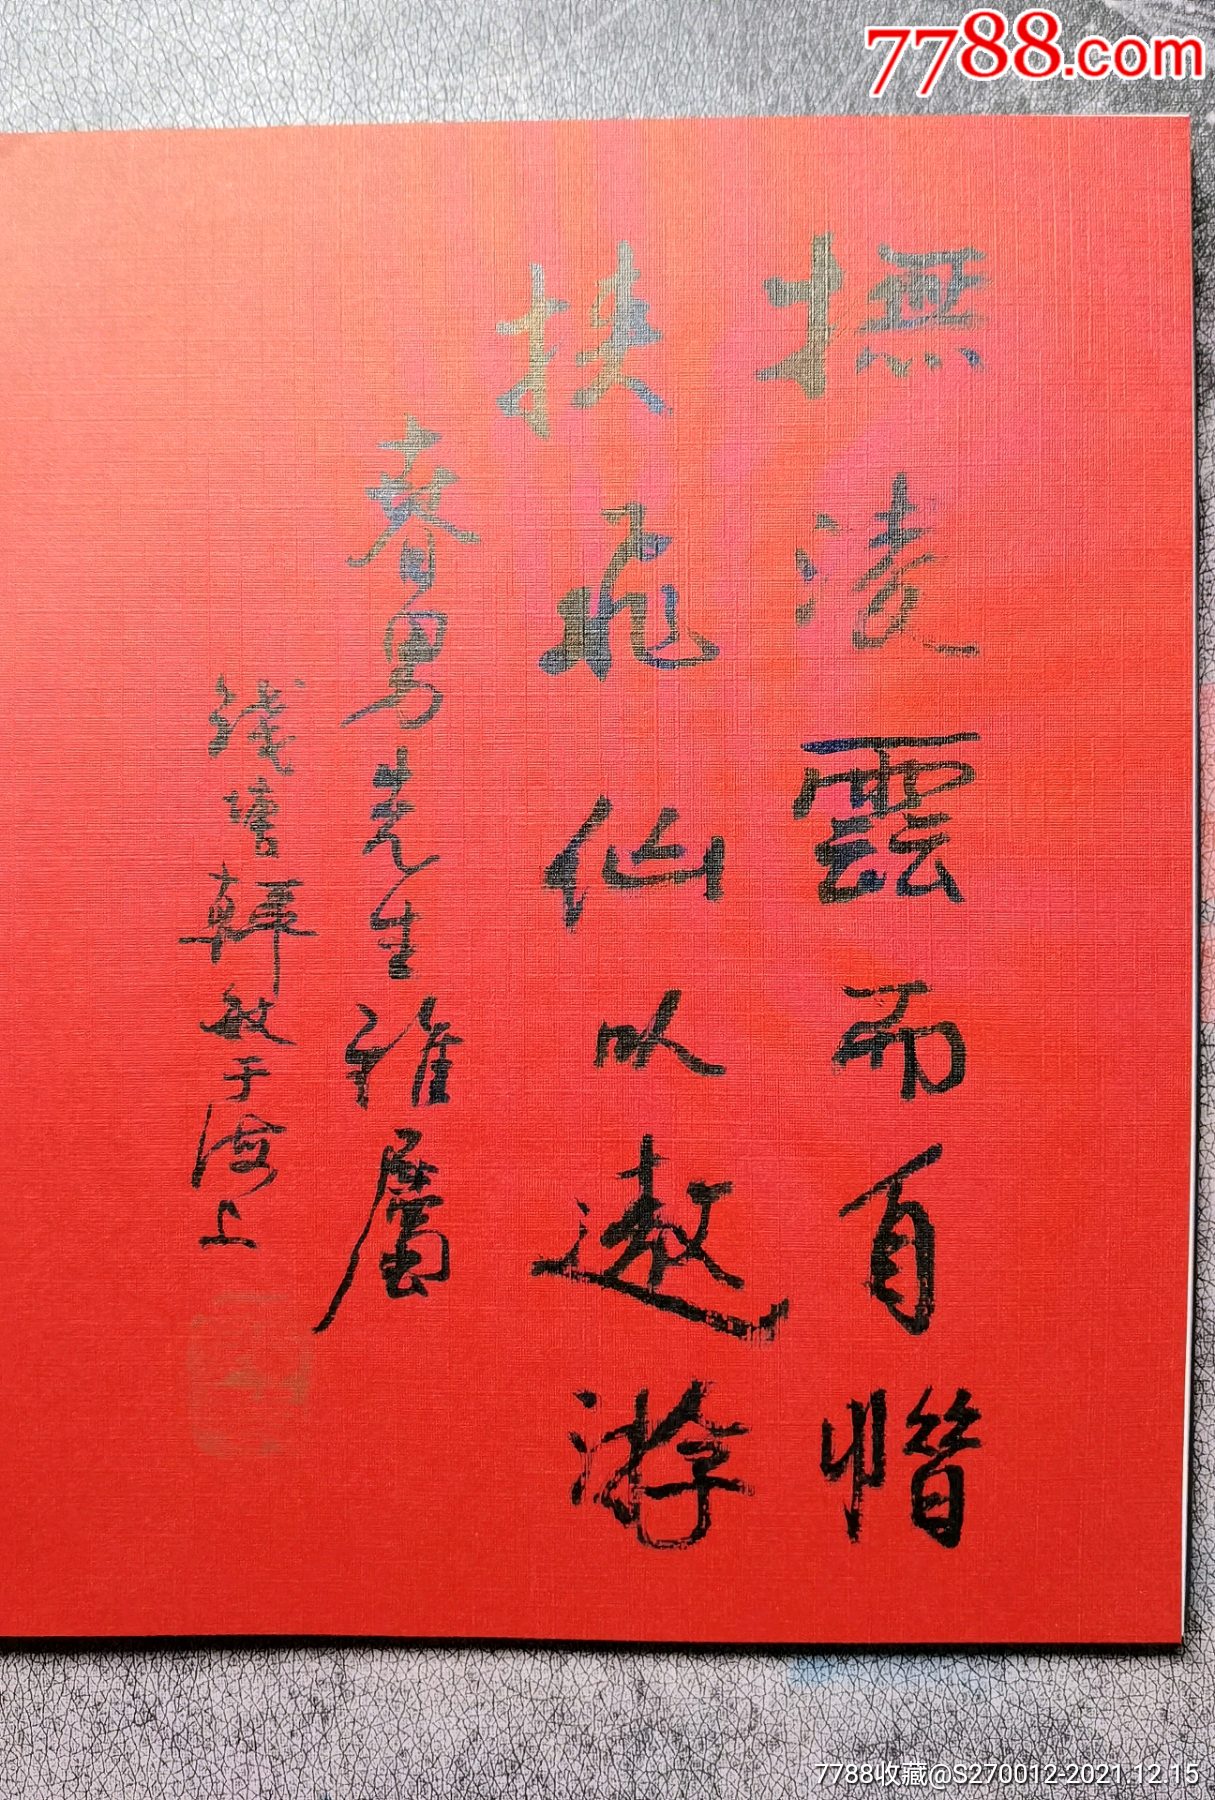 7788.com
撫淩雲而自惜
挾飛仙以遨游
春男先生雅屬
錢唐韓敏于海上
7788收藏@S270012-2021.12.15